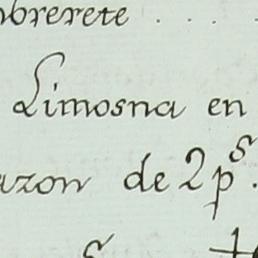 brerete . . . .
Limosna en
azon de 2 p.s